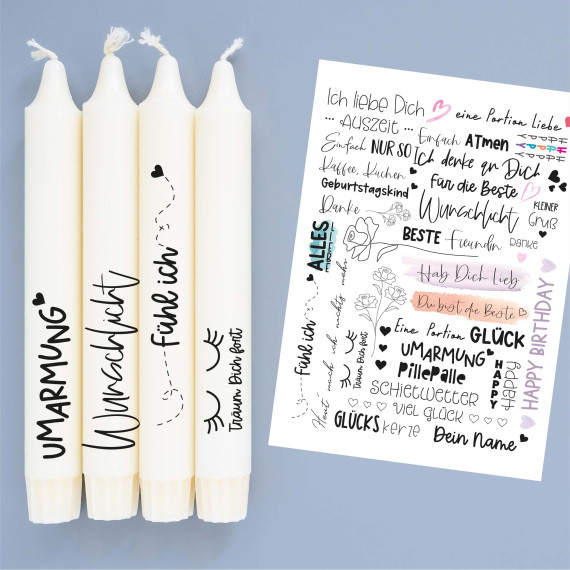 UMARMUNG
Wunschlicht
Fühl ich
Träum Dich fort
Ich liebe Dich
eine Portion Liebe
... AUSZEIT ...
Einfach ATMEN
HAPPY
HAPPY
HAPPY
Einfach NUR SO
Ich denke an Dich
Kaffee, Kuchen
Für die Beste
Geburtstagskind
Wunschlicht
KLEINER
Gruß
Danke
ALLES
BESTE Freundin
Danke
Hab Dich lieb
Du bist die Beste
Fühl ich
Heut mach ich nichts mehr
Träum Dich fort
Eine Portion GLÜCK
UMARMUNG
PillePalle
SCHIETWETTER
VIEL GLÜCK
HAPPY
Happy
HAPPY BIRTHDAY
GLÜCKS kerze
Dein Name